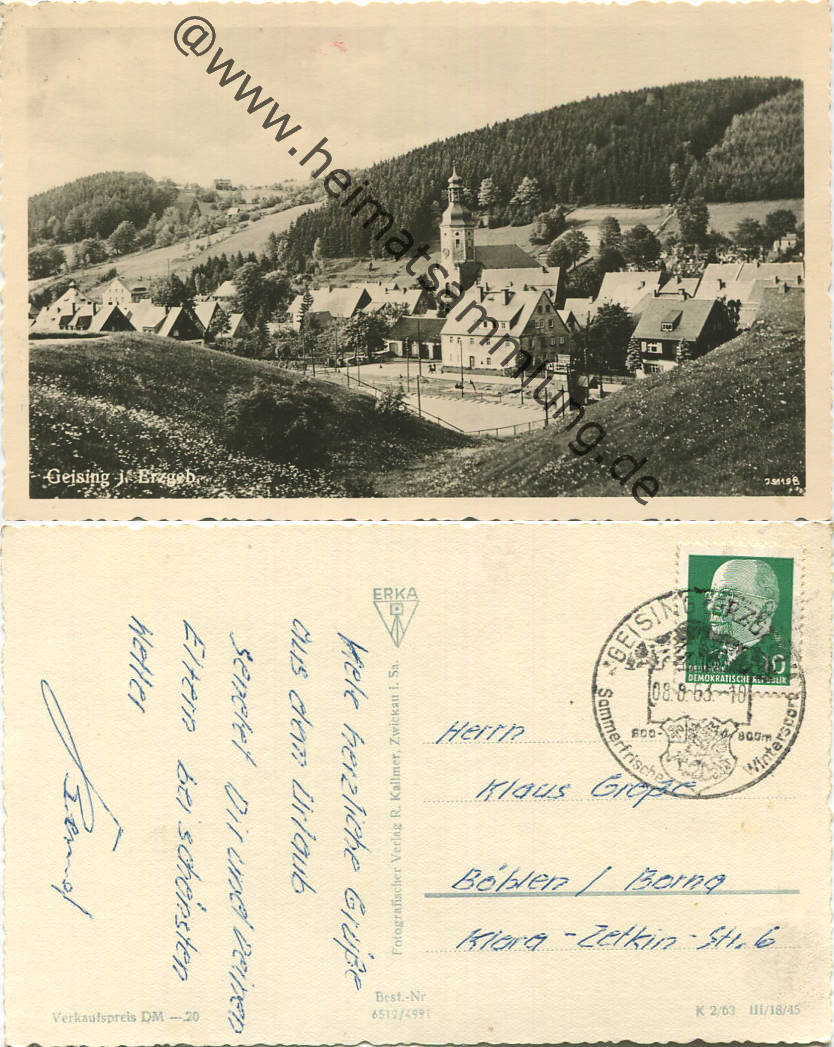 @www.heimatsammlung.de
Geising i. Erzgeb.
Viele herzliche Grüße
aus dem Urlaub
sendet Dir und Deinen
Eltern bei schönsten
Wetter
ERKA
Fotografischer Verlag R. Kallmer, Zwickau i. Sa.
Best.-Nr
6512/4991
Verkaufspreis DM —.20
10
DEUTSCHE
DEMOKRATISCHE REPUBLIK
GEISING (ERZGEB)
08.8.63.-10
600-
800m
Sommerfrische
Wintersport
Herrn
Klaus Große
Böhlen / Borna
Klara-Zetkin-Str. 6
K 2/63 III/18/45